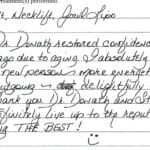 t, Necklift, Jowl Lipo
Dr. Donath restored confidenc
ago due to aging. I absolutely
new person - more energet
outgoing - delightfully
hank you Dr. Donath and St
finitely live up to the reput
ng THE BEST!